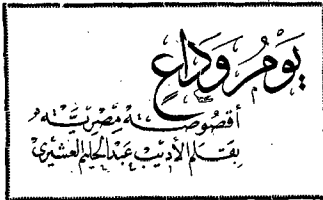 يَوْمُ وَدَاعٍ
أقصوصة مصرية
بقلم الأديب عبد الحليم العشيري